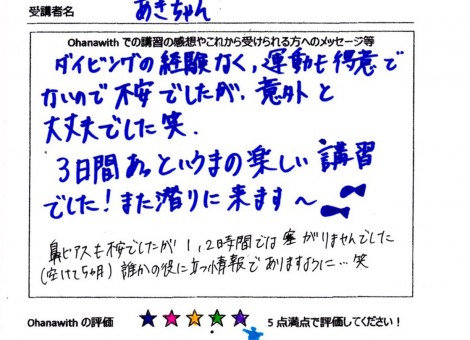 受講者名 あきちゃん
Ohanawith での講習の感想やこれから受けられる方へのメッセージ等
ダイビングの経験なく、運動も得意で
ないので不安でしたが、意外と
大丈夫でした笑.
3日間あっというまの楽しい講習
でした！また潜りに来ます〜
鼻ピアスも不安でしたが1,2時間では塞がりませんでした
(空けて5ヶ月) 誰かの役に立つ情報でありますように…笑
Ohanawith の評価 ★★★★★ 5 点満点で評価してください！